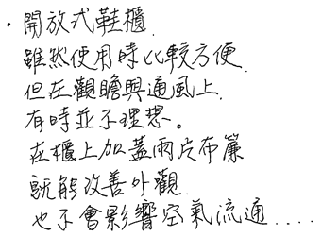 ·開放式鞋櫃.
雖然使用時比較方便.
但在觀瞻與通風上.
有時並不理想。
在櫃上加蓋兩片布簾
就能改善外觀
也不會影響空氣流通....